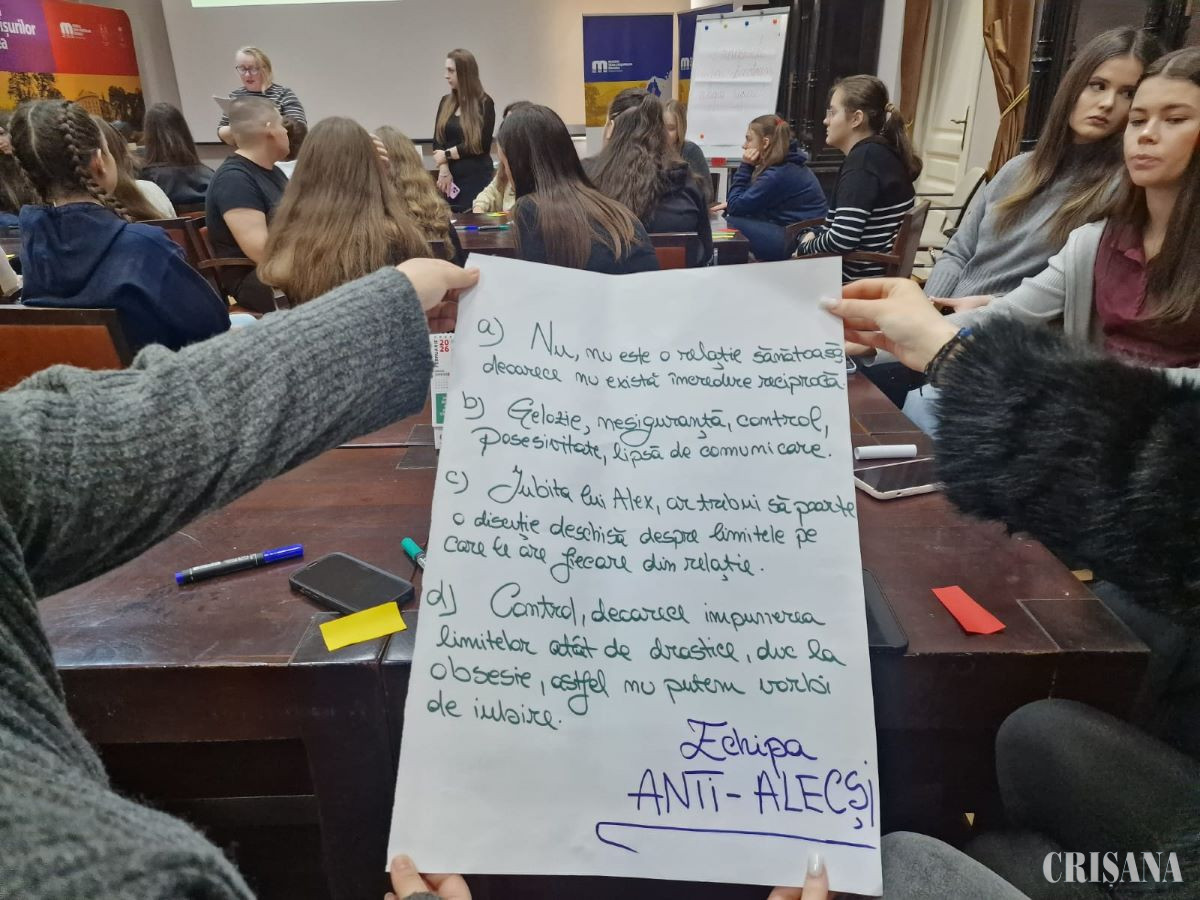 ișurilor
a) Nu, nu este o relație sănătoasă,
deoarece nu există încredere reciprocă
b) Gelozie, nesiguranță, control,
posesivitate, lipsă de comunicare.
c) Iubita lui Alex, ar trebui să poarte
o discuție deschisă despre limitele pe
care le are fiecare din relație.
d) Control, deoarece impunerea
limitelor atât de drastice, duc la
obsesie, astfel nu putem vorbi
de iubire.
Echipa
ANTi-ALECȘI
CRIȘANA